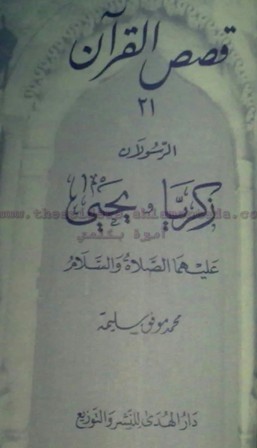 قصص القرآن
٢١
الرسولان
زكريا و يحيى
أميرة بكلمتي
عليهما الصلاة والسلام
محمد موفق سليمة
دار الهدى للنشر والتوزيع